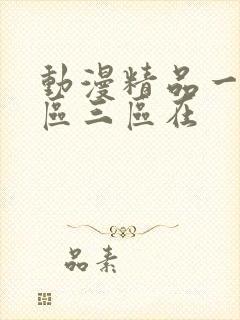 動漫精品一
區三區在
品素